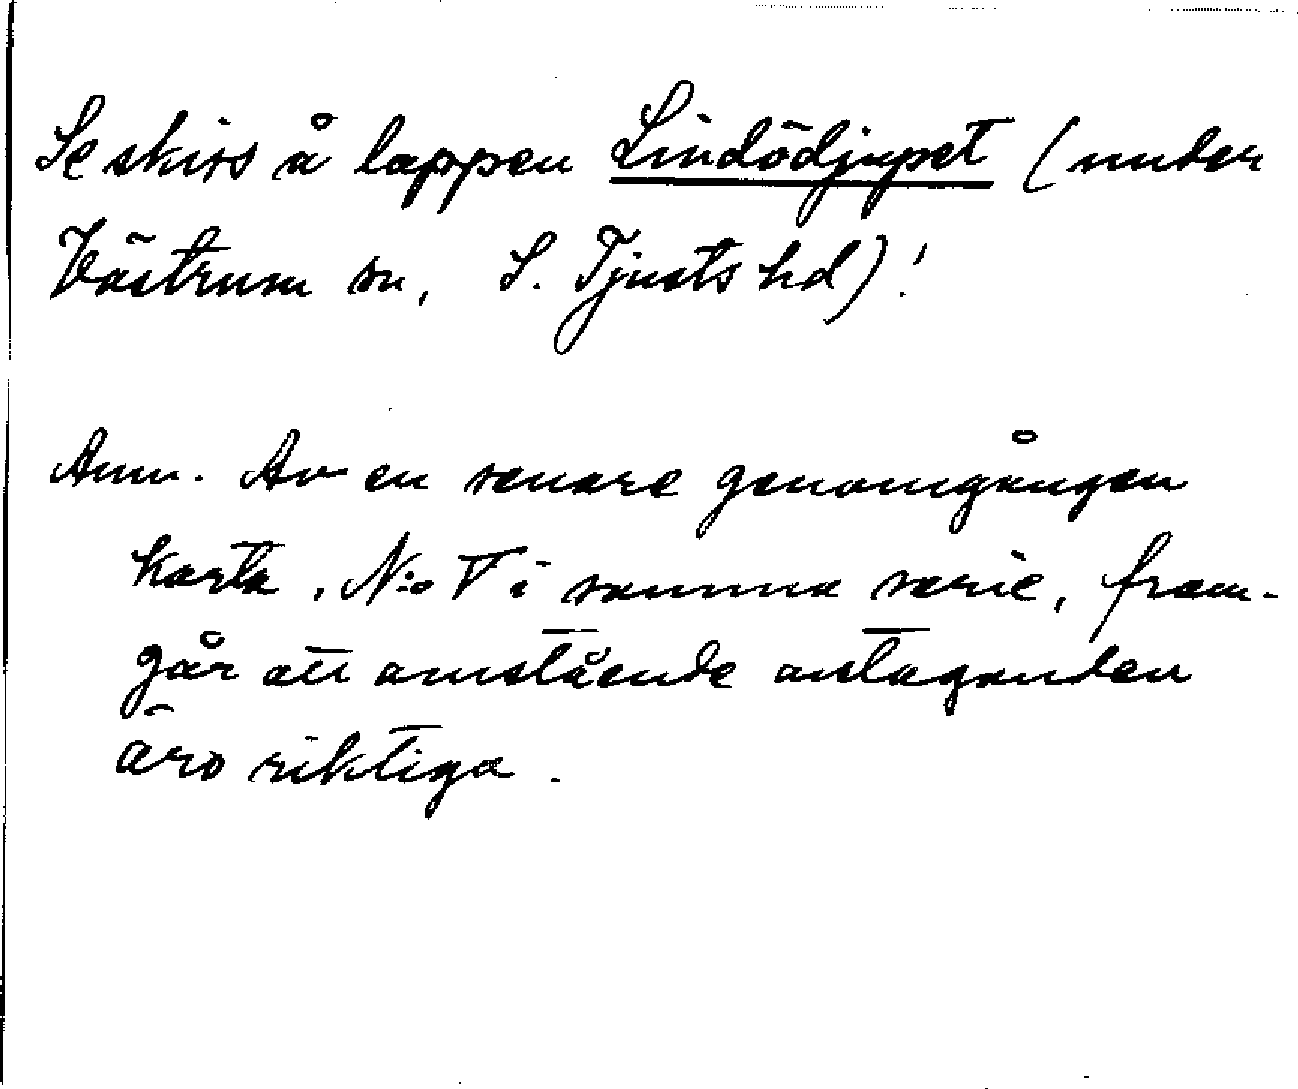 Se skiss å lappen Lindödjupet (under
Västrum sn, S. Tjusts hd)!
Anm. Av en senare genomgången
karta, N:o V i samma serie, fram-
går att omstående antaganden
äro riktiga.